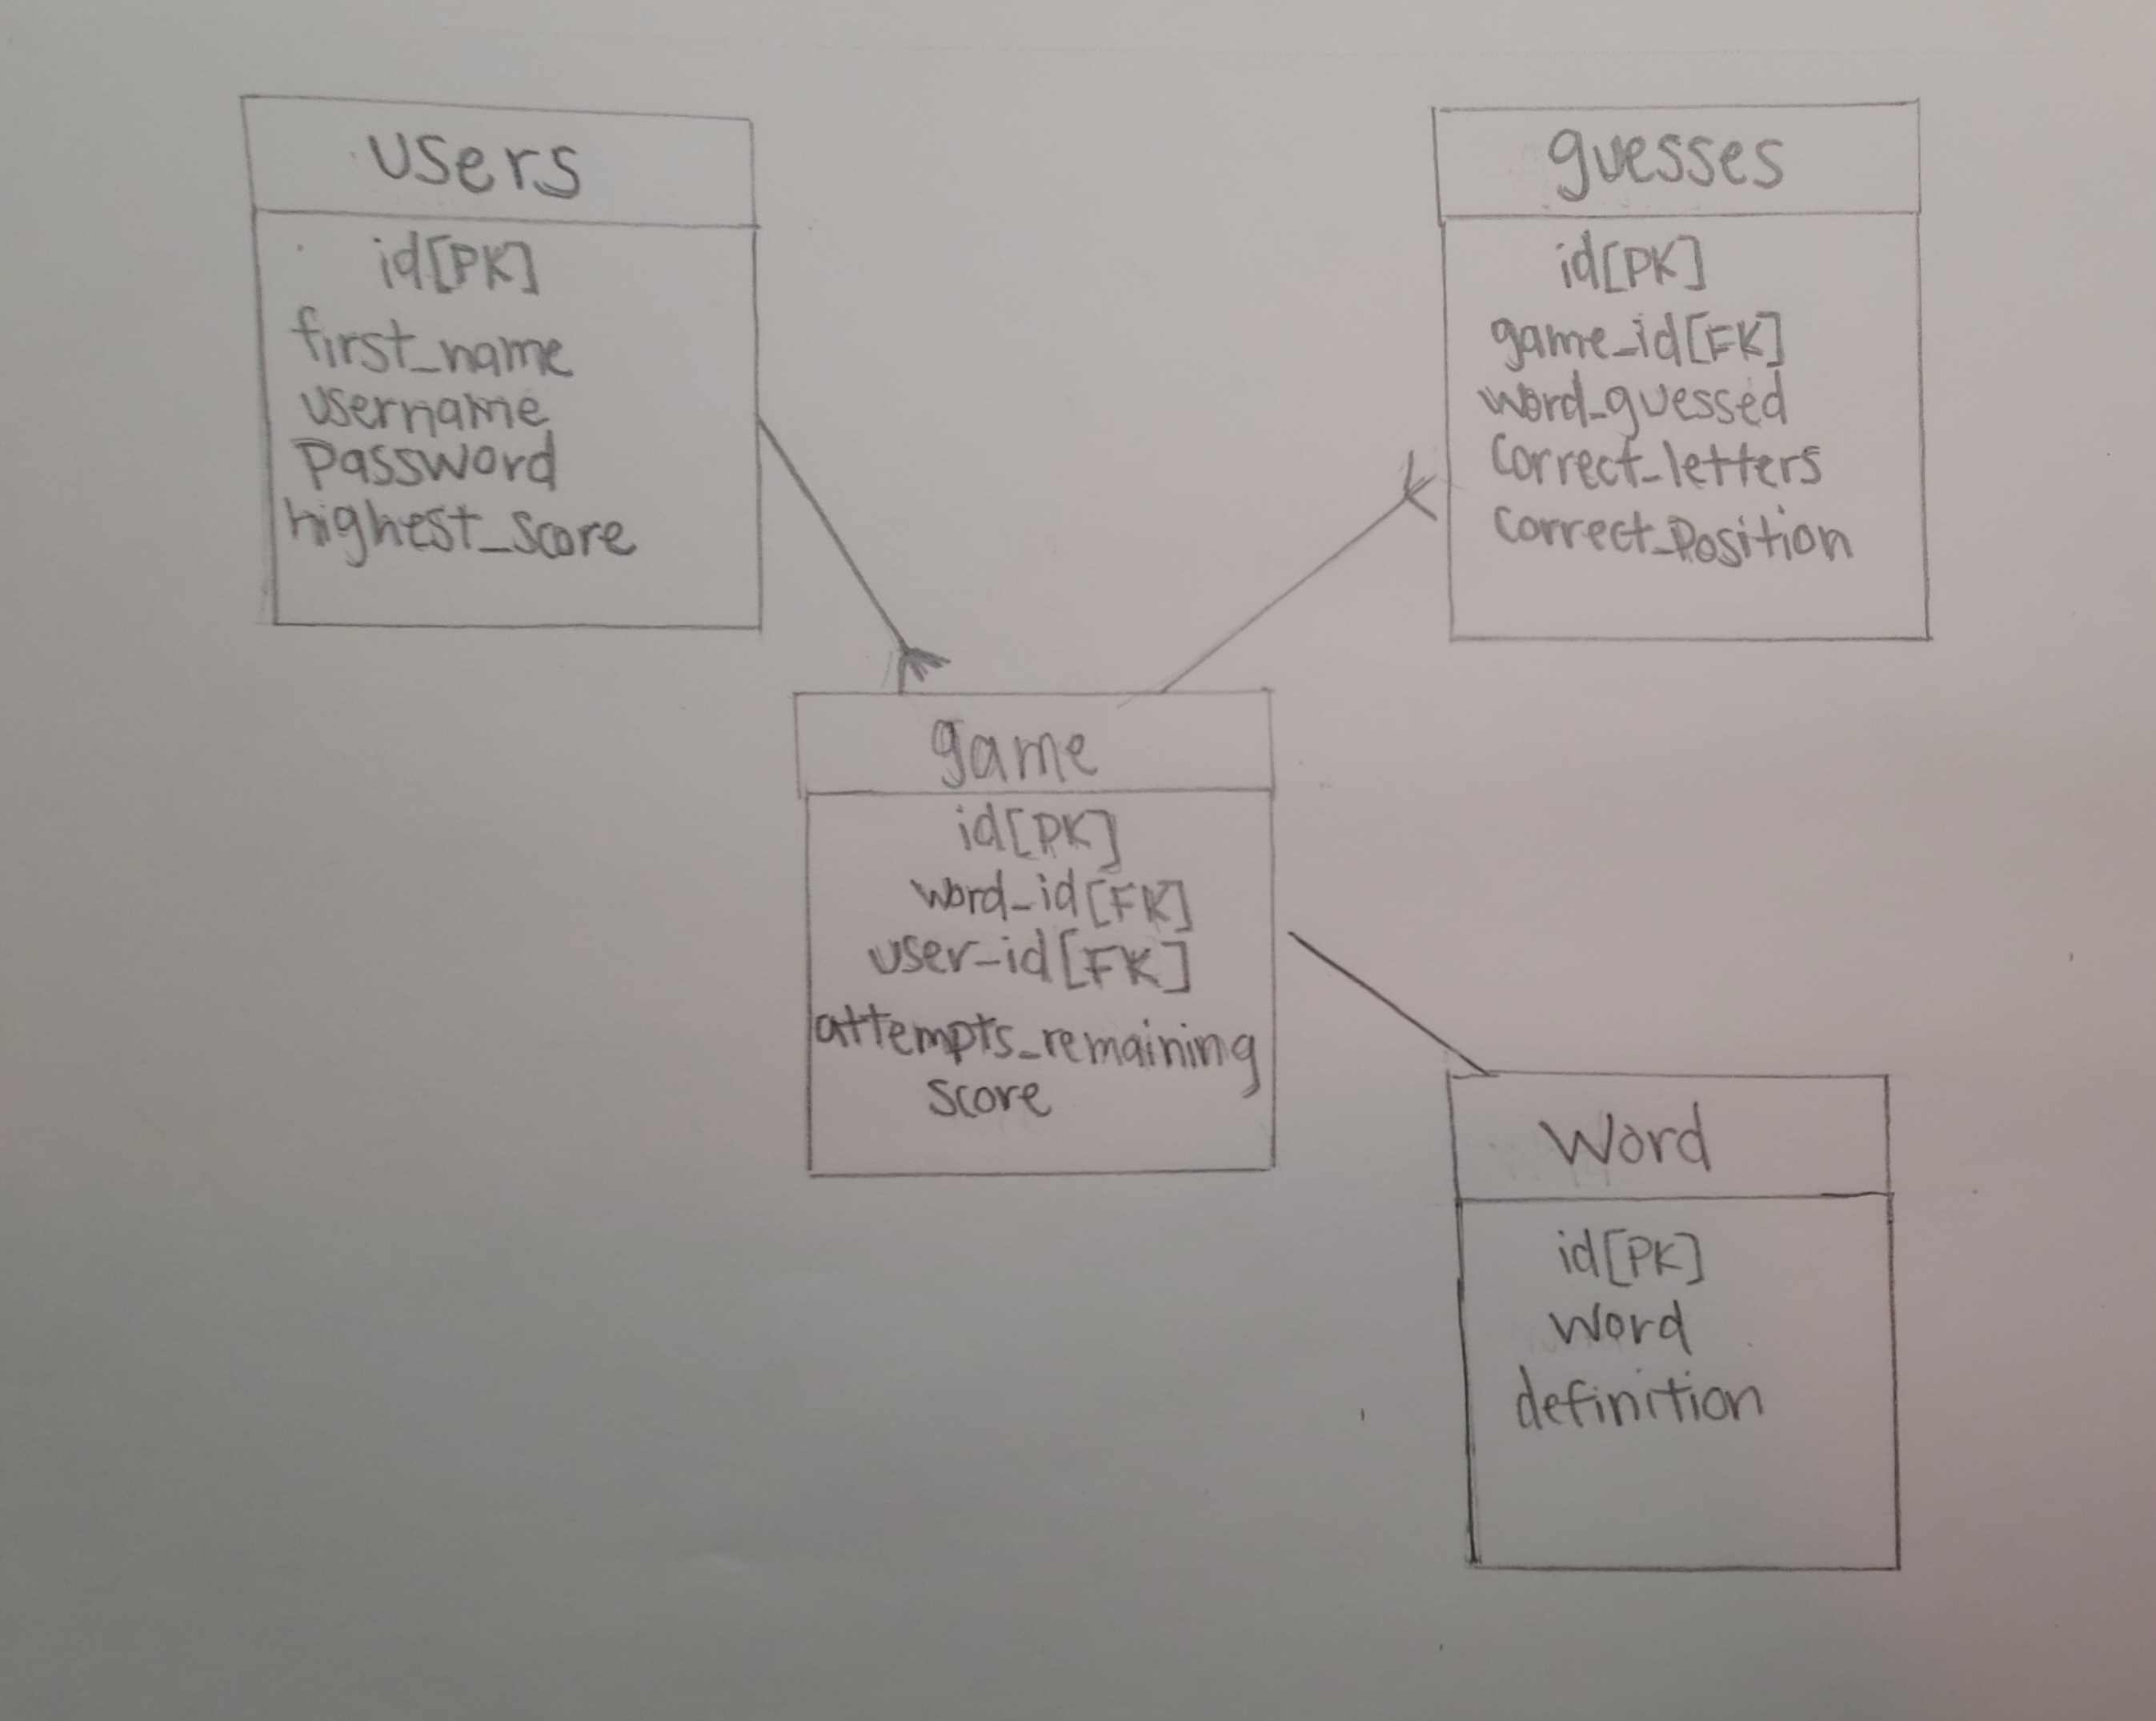 users
id[PK]
first_name
username
Password
highest_score
guesses
id[PK]
game_id[FK]
word_guessed
correct_letters
correct_Position
game
id[PK]
word_id[FK]
user_id[FK]
attempts_remaining
score
Word
id[PK]
Word
definition